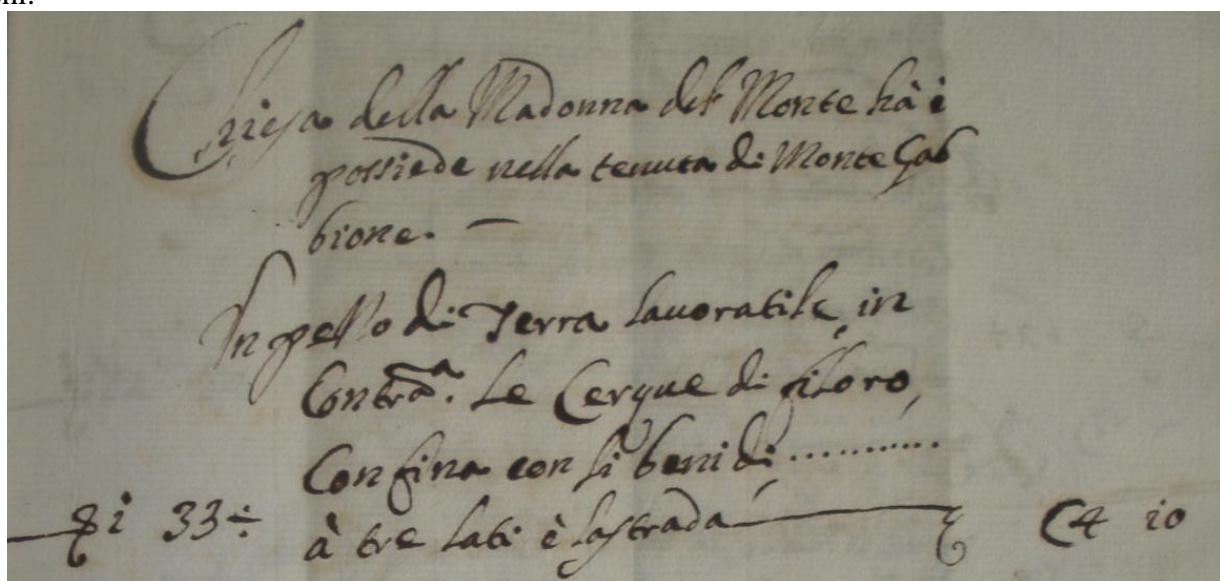 Chiesa della Madonna del Monte hà è
possiede nella tenuta di Monte Gab
bione. —
Un pezzo di Terra lauoratiua in
Contra. Le Cerque di filoro,
Confina con li beni di ..........
33 à tre lati è la strada 10